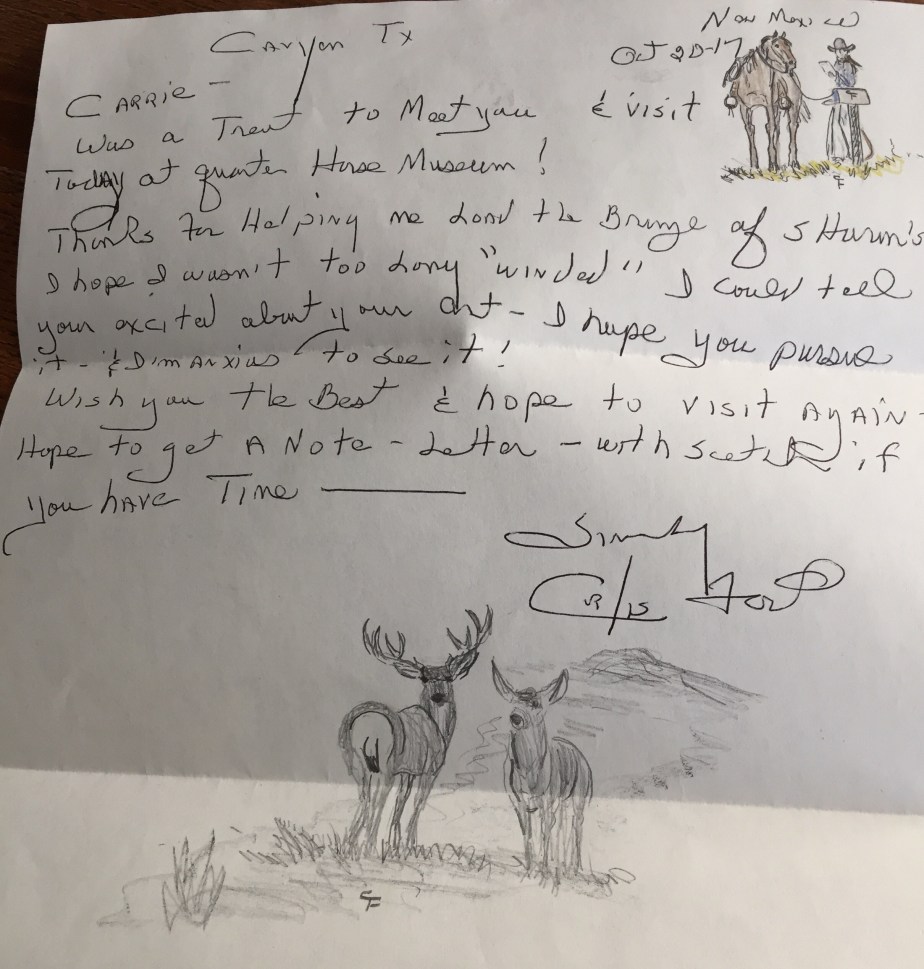 New Mexico
Canyon Tx
Oct 20-17
Carrie -
Was a Treat to Meet you & visit
Today at quarter Horse Museum!
Thanks for Helping me Load the Bronze of SHurm's
I hope I wasn't too Long "winded" I could tell
your excited about your Art - I hope you pursue
it - & I'm Anxius to see it!
Wish you the Best & hope to visit Again
Hope to get A Note - Letter - with Scetch if
you have Time
Curtis Fort
CF
CF